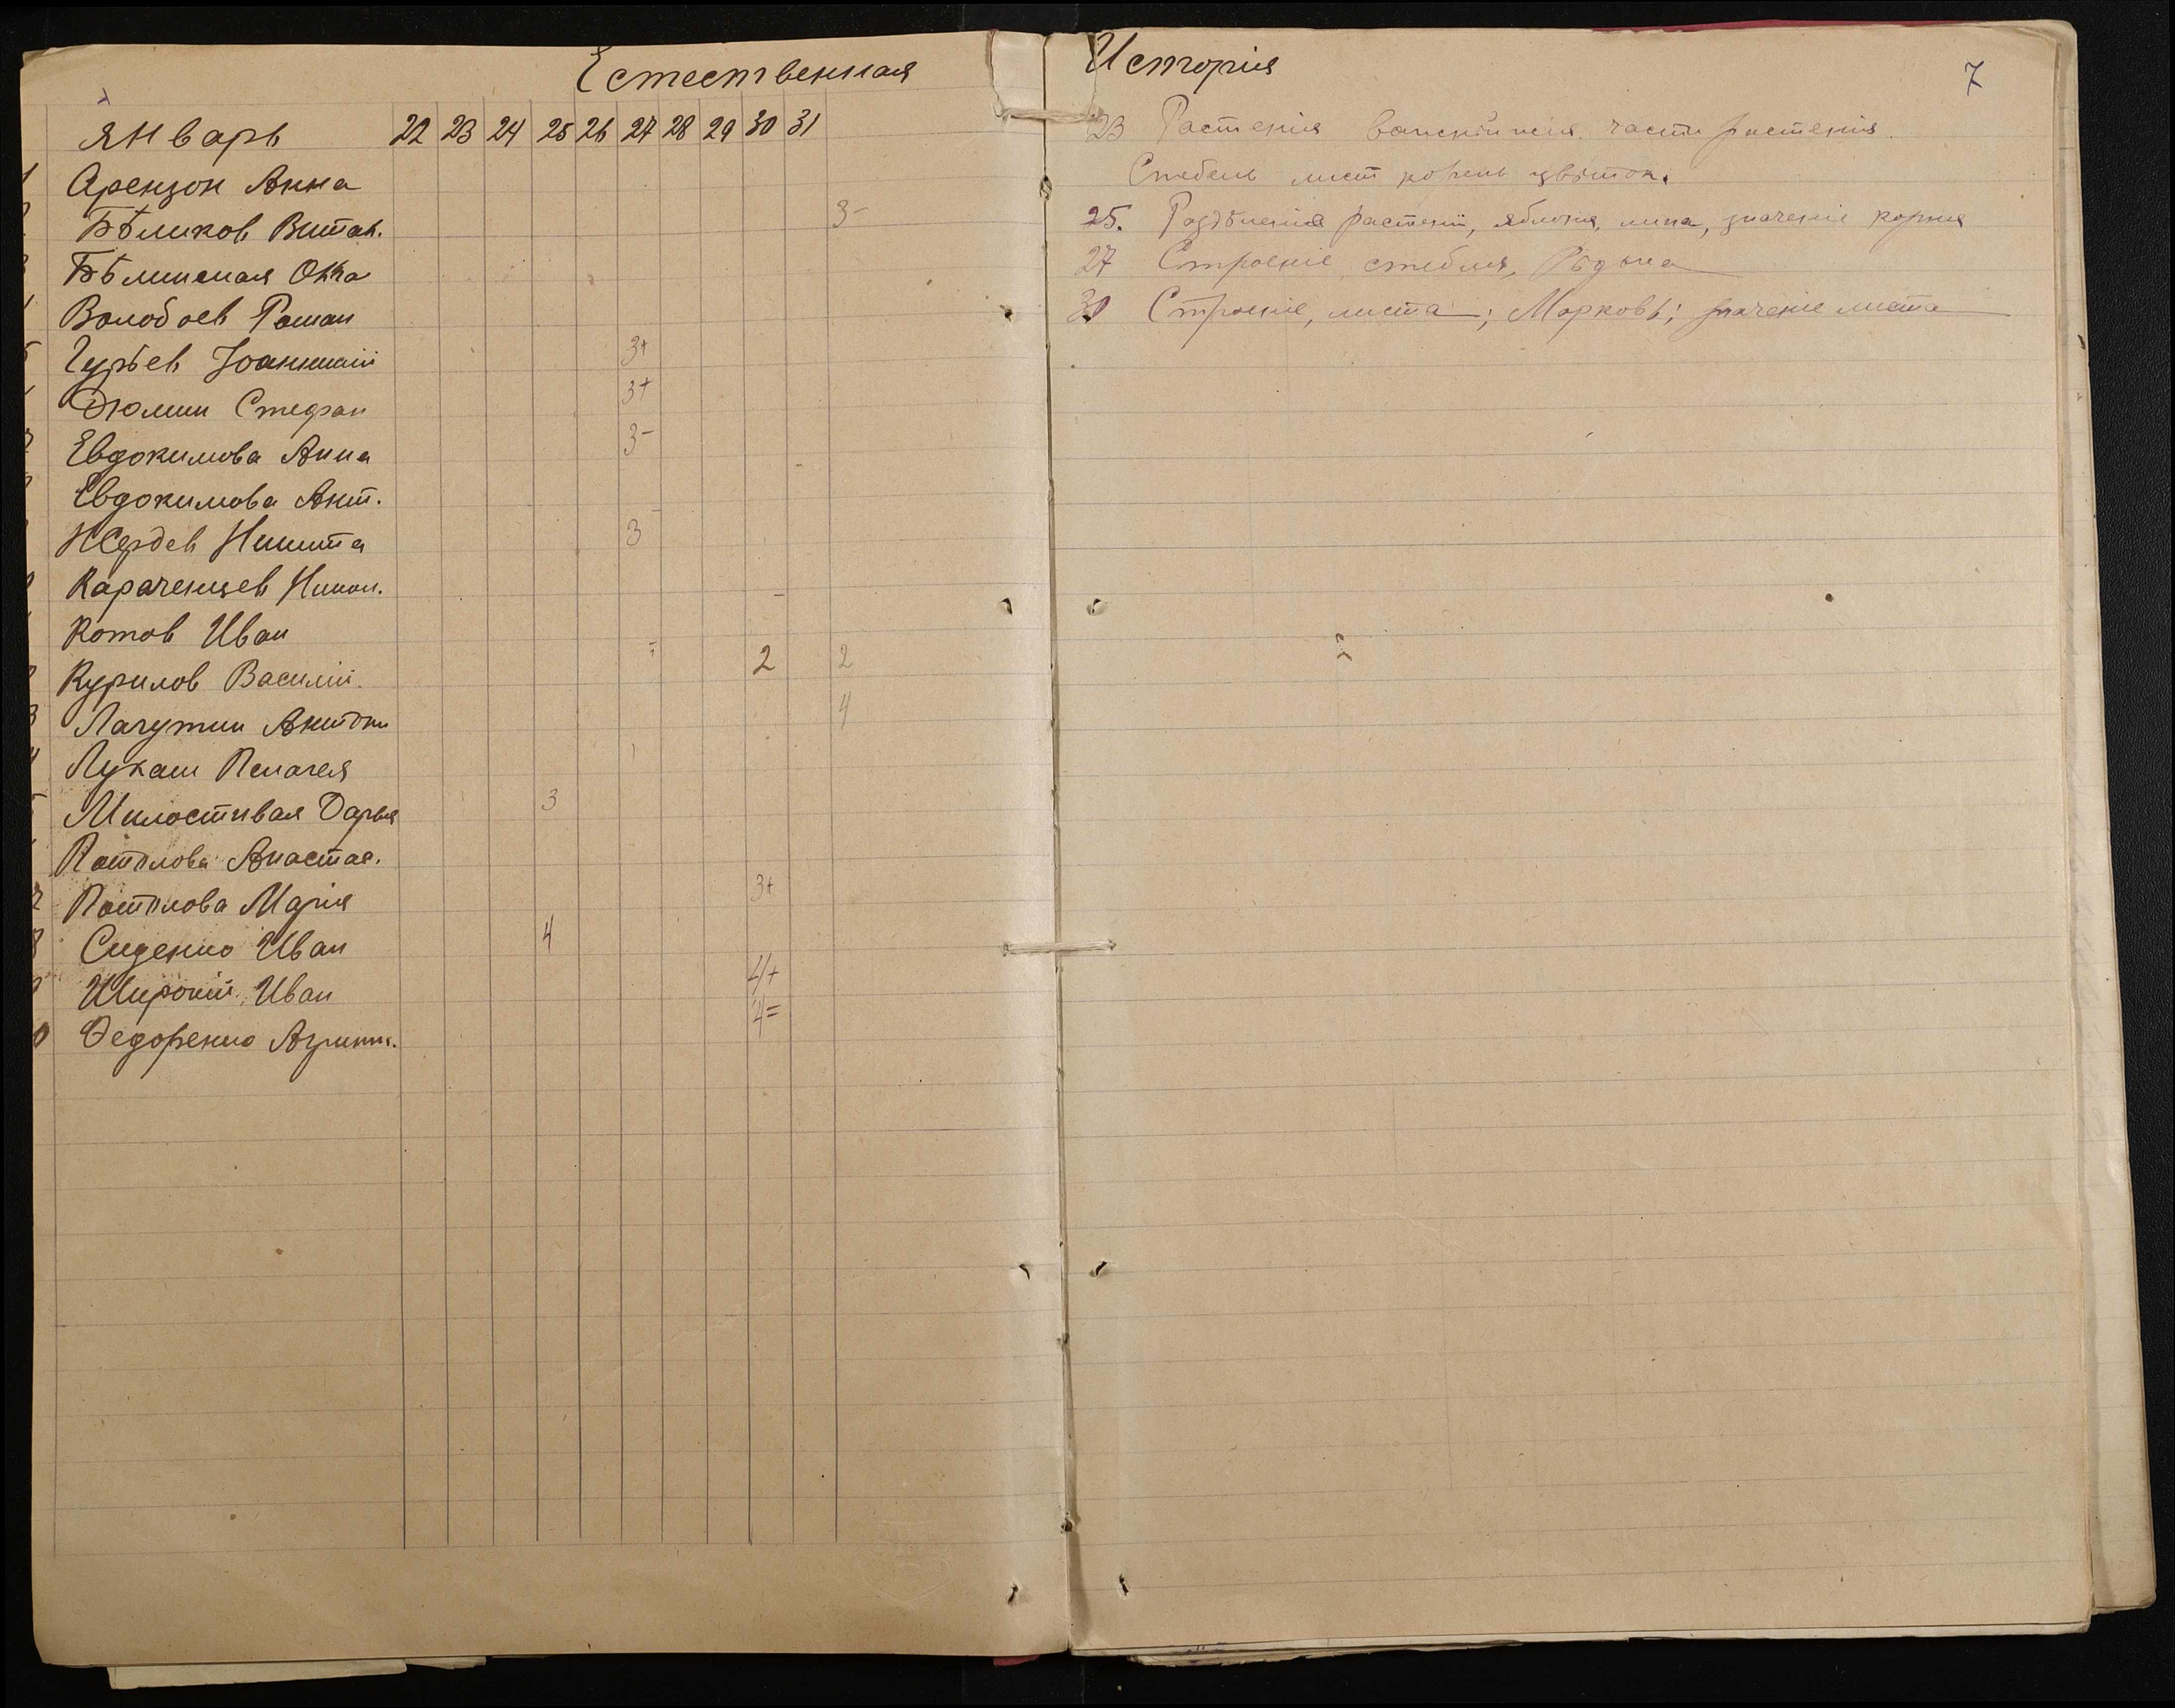 Естественная
Январь 22 23 24 25 26 27 28 29 30 31
1 Арензон Анна
Бѣликов Витал. 3-
Бѣлинская Анна
Волобоев Роман
5 Гурьев Іоанникий 3+
Дюмин Стефан 3+
Евдокимова Анна 3-
Евдокимова Ант.
Жердев Никита 3
Караченцев Никол.
Котов Иван
Курилов Василій. 2 2
3 Лагутин Антон 4
4 Лукаш Пелагея
5 Милостивая Дарья 3
Потолова Анастас.
7 Потолова Марія 3+
8 Сиденко Иван 4
9 Широкій Иван 4+
0 Федоренко Агрипп. 4=
Исторія
7
23 Растенія части растенія.
Стебель лист корень цвѣток.
25. Раздѣленіе растеній, яблоня, липа, значеніе корня
27 Строеніе стебля, Рѣдька
30 Строеніе, листа; Морковь; значеніе листа